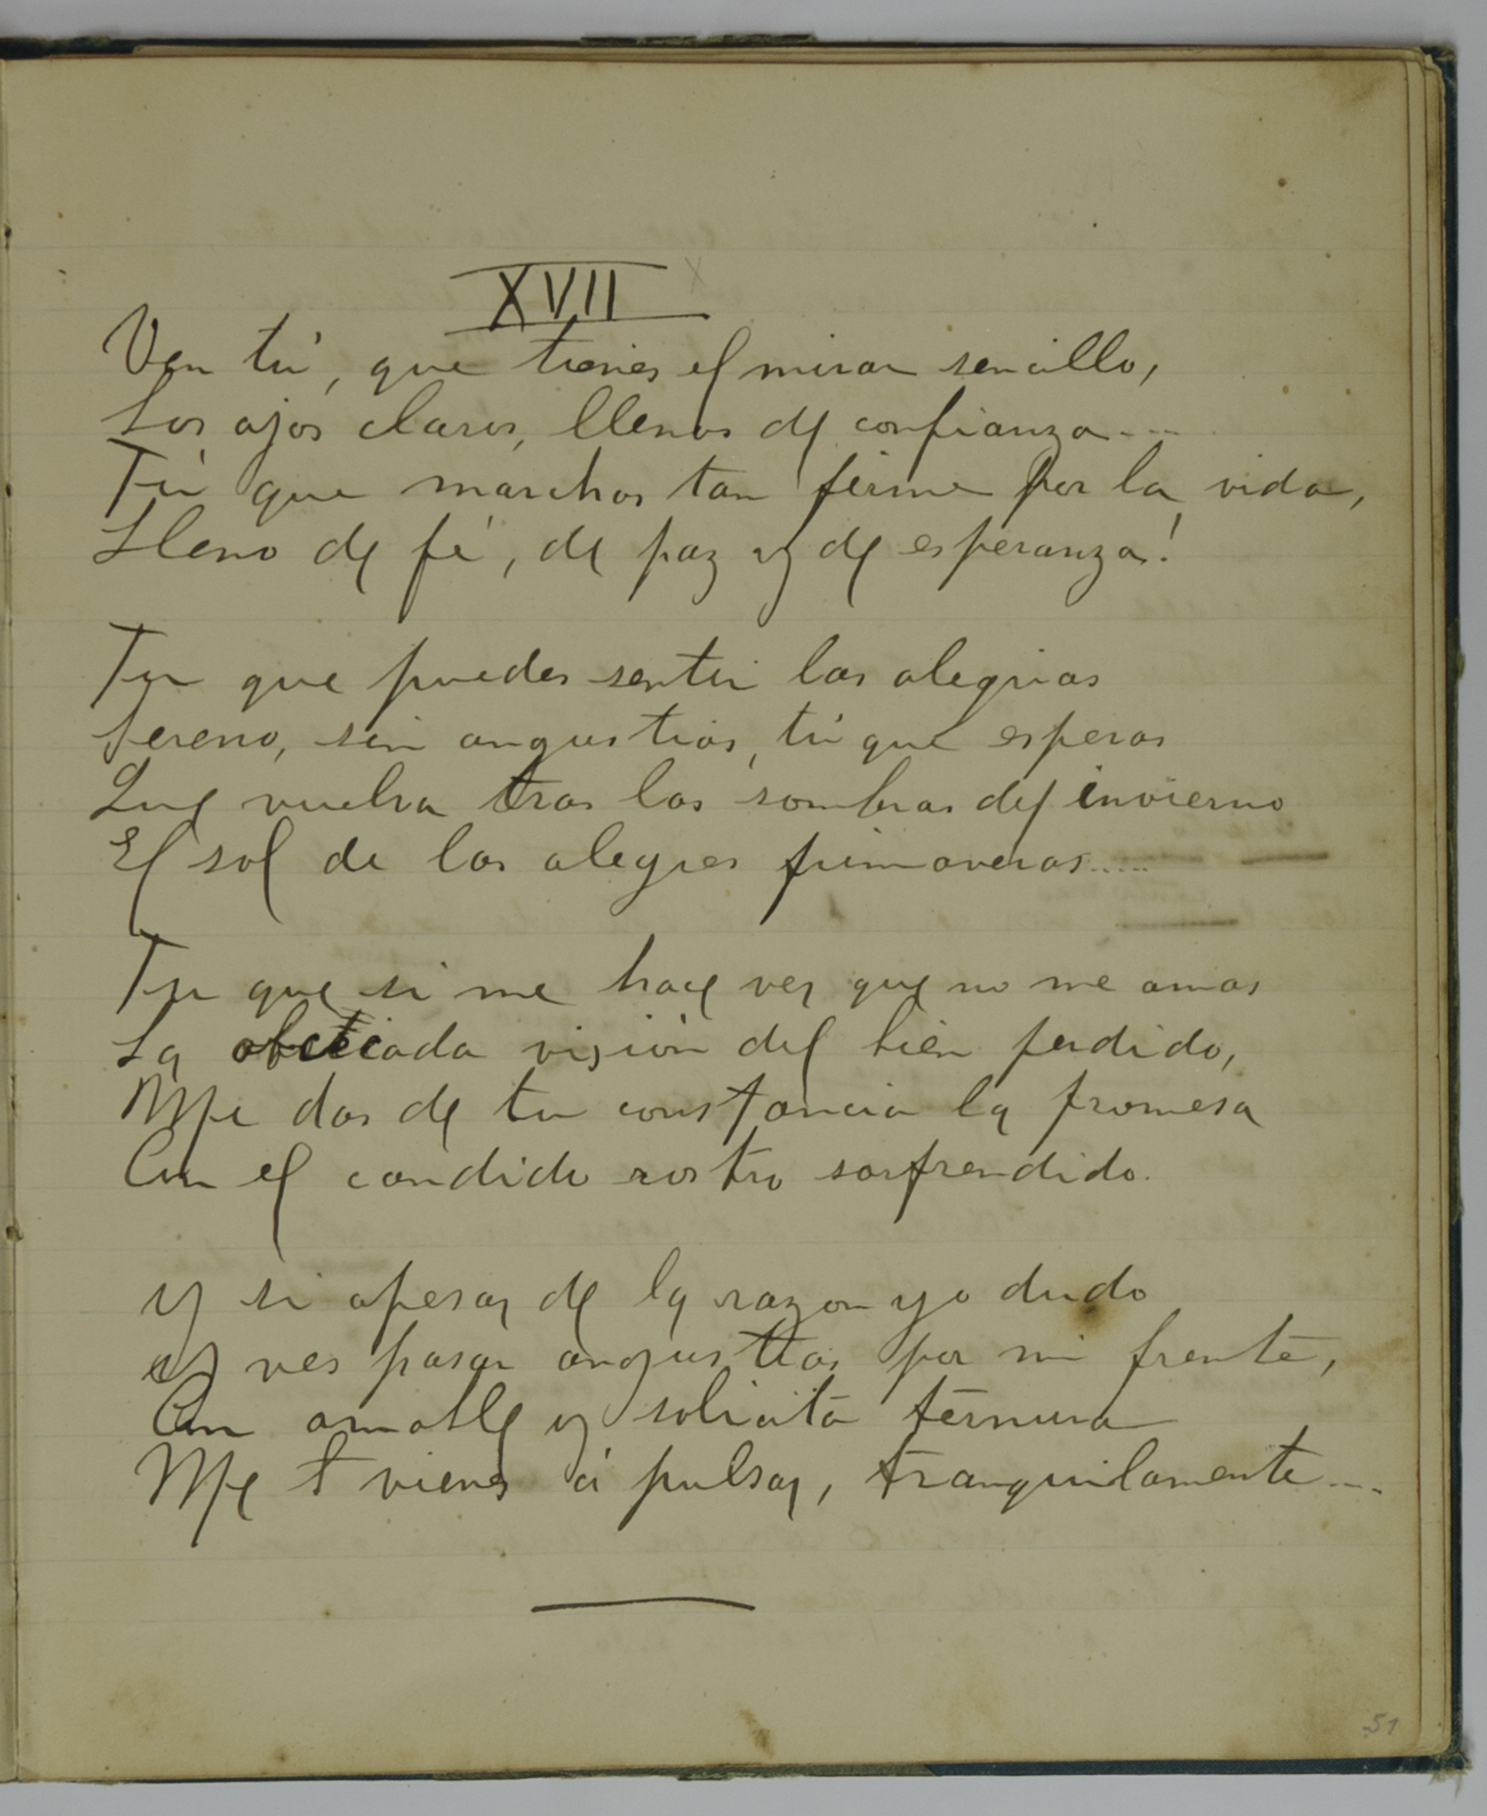 XVII
Ven tú, que tienes el mirar sencillo,
Los ojos claros, llenos de confianza....
Tú que marchas tan firme por la vida,
Lleno de fé, de paz y de esperanza!
Tu que puedes sentir las alegrias
Sereno, sin angustias, tú que esperas
Que vuelva tras las sombras del invierno
El sol de las alegres primaveras.....
Tu que si me hace ver que no me amas
La obcecada visión del bien perdido,
Me das de tu constancia la promesa
Con el candido rostro sorprendido.
Y si apesar de la razon yo dudo
Y ves pasar angustias por mi frente,
Con amable y solicita ternura
Me vienes á pulsar, tranquilamente....
51